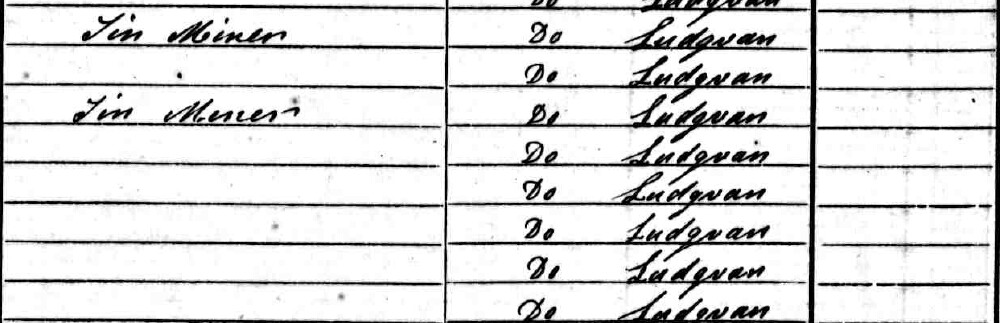 Do Ludgvan
Tin Miner Do Ludgvan
Do Ludgvan
Tin Miner Do Ludgvan
Do Ludgvan
Do Ludgvan
Do Ludgvan
Do Ludgvan
Do Ludgvan